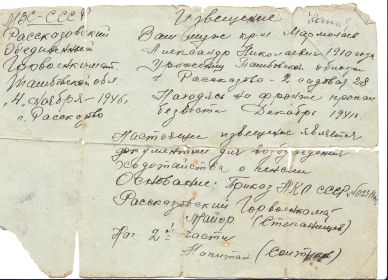 МВС-СССР
Рассказовский
Объединенный
Горвоенкомат
Тамбовской обл.
"4" Ноября 1946 г.
г. Рассказово
Извещение
Ваш муж кр-ц Мармолаев
Александр Николаевич 1910 года
Уроженец Тамбовской области
г. Рассказово - 2 садовая 28
Находясь на фронте пропал
безвести Декабрь 1941 г.
Настоящее извещение является
документом для возбуждения
ходотайства о пенсии
Основание: Приказ НКО СССР №
Рассказовский Горвоенкомат
Майор (Степанищев)
Нач 2й части
Капитан